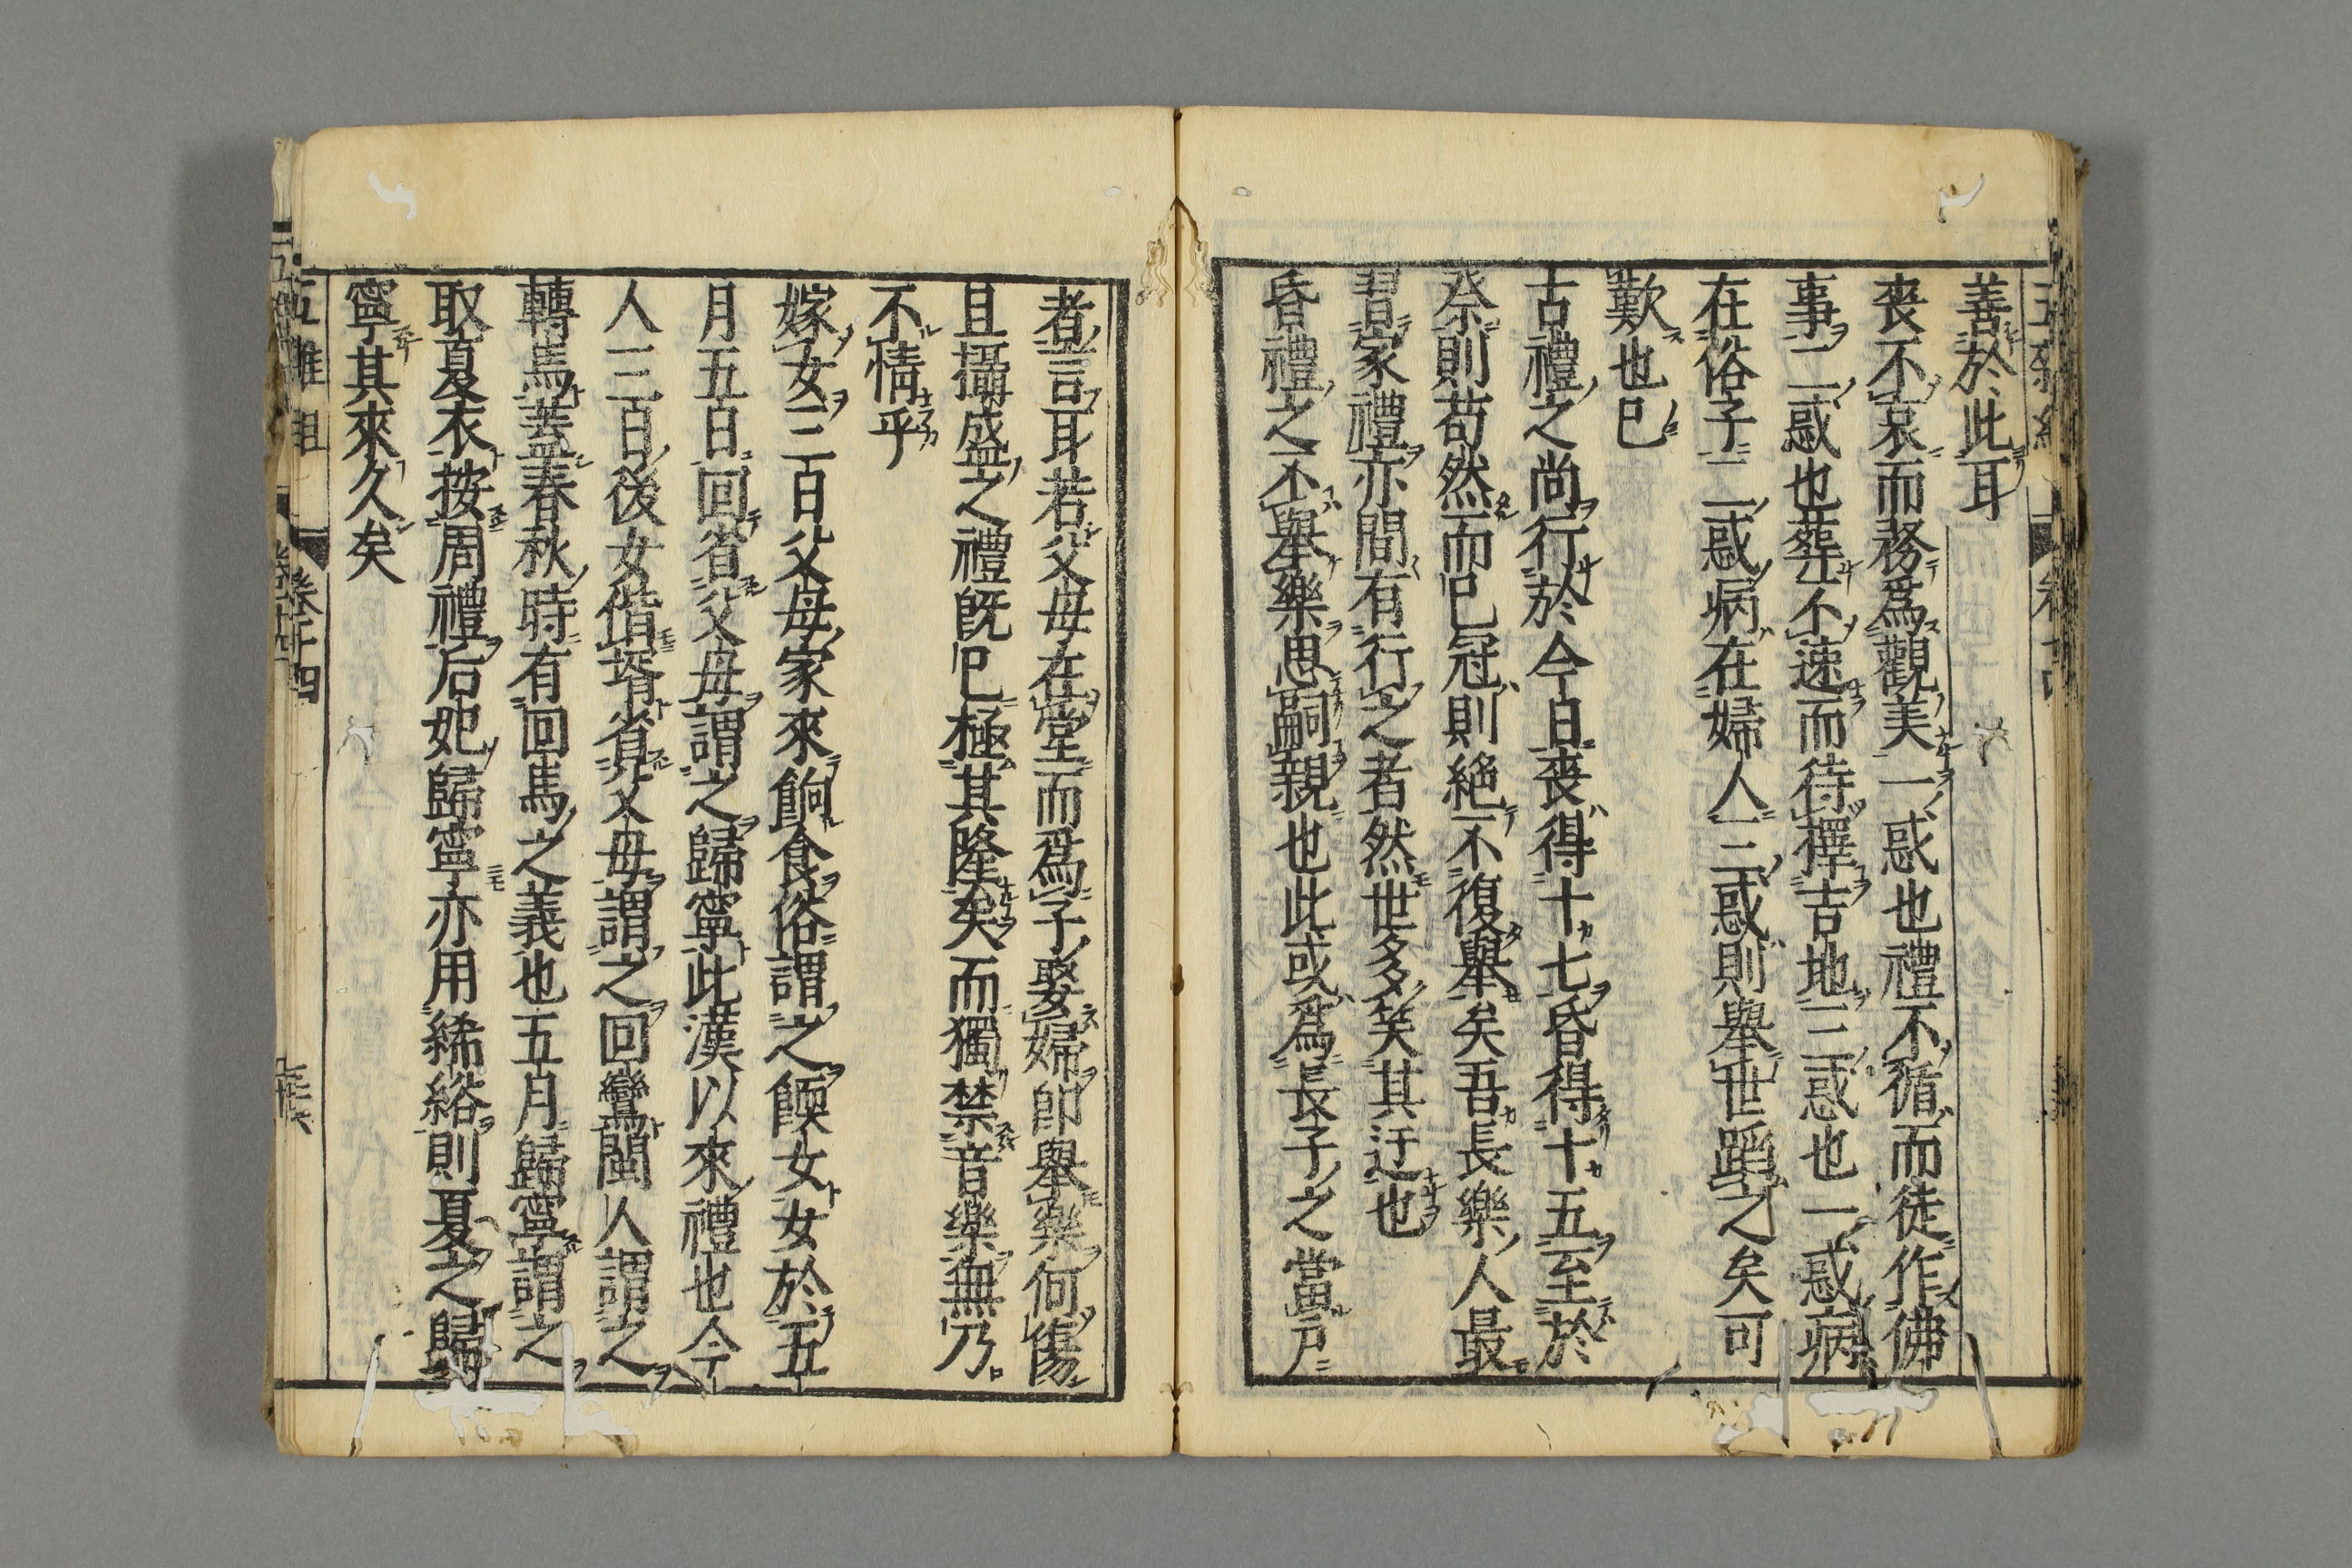 善於此耳
喪不哀而務爲觀美一惑也禮不循而徒作佛
事二惑也葬不速而待擇吉地三惑也一惑病
在俗子二惑病在婦人三惑則舉世蹈之矣可
歎也已
古禮之尚行於今日喪得十七昏得十五至於
祭則苟然而已冠則絶不復舉矣吾長樂人最
習家禮亦間有行之者然世多笑其迂也
昏禮之不舉樂思嗣親也此或爲長子之當戸
者言耳若父母在堂而爲子娶婦卽舉樂何傷
且攝盛之禮既已極其隆矣而獨禁音樂無乃
不情乎
嫁女三日父母家來餉食俗謂之餪女女於五
月五日回省父母謂之歸寧此漢以來禮也今
人三日後女偕壻省父母謂之回鸞閩人謂之
轉馬蓋春秋時有回馬之義也五月歸寧謂之
取夏衣按周禮后妃歸寧亦用絺綌則夏之歸
寧其來久矣
五雜組
卷十四